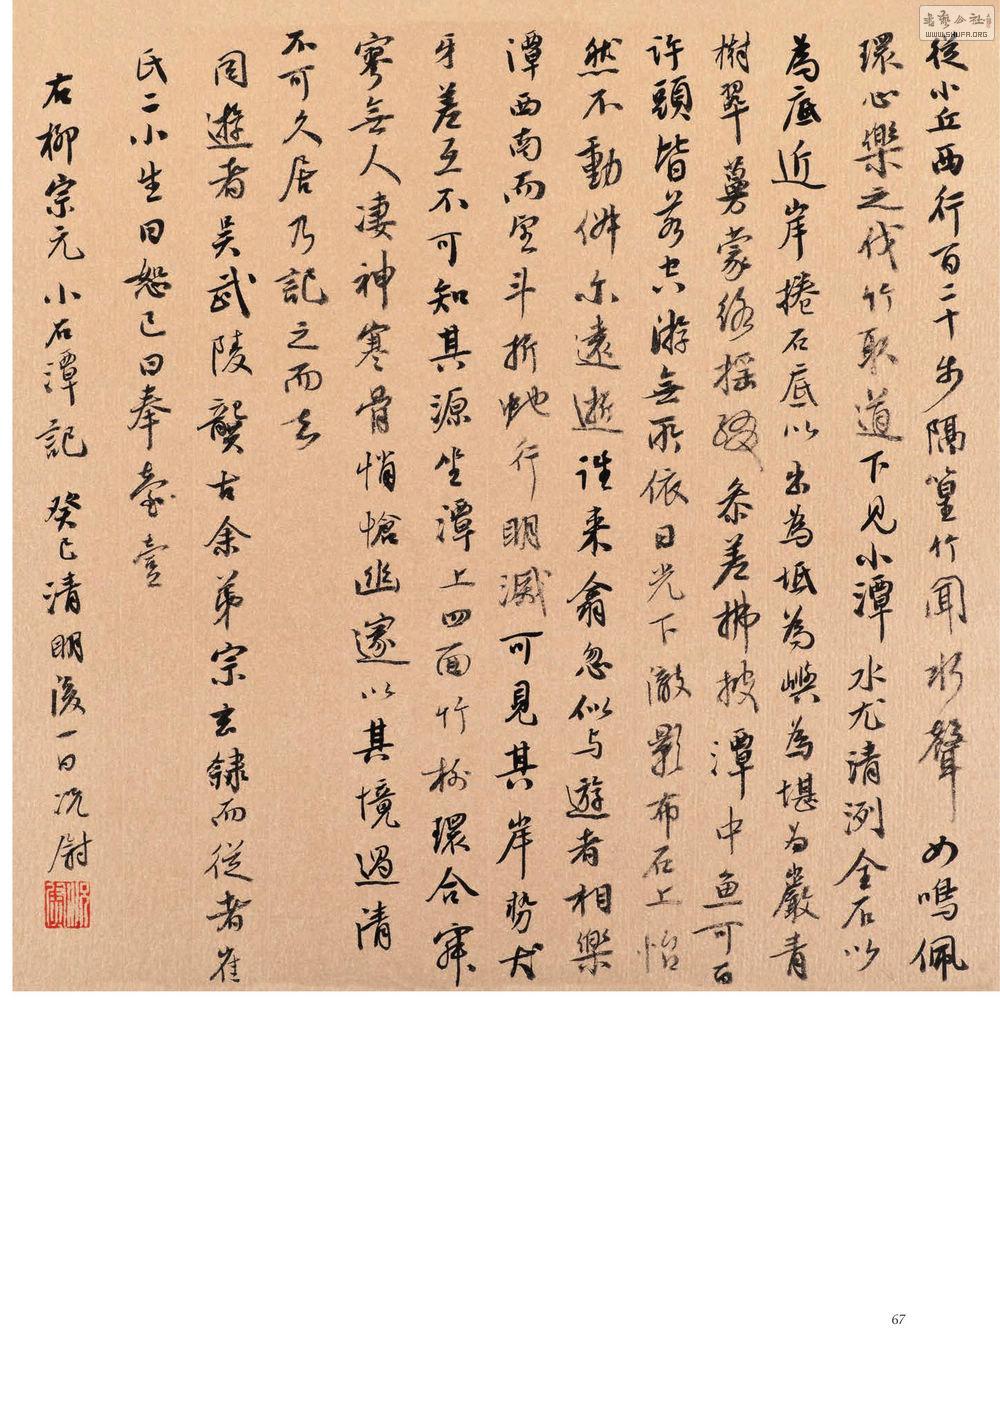 從小丘西行百二十步隔篁竹聞水聲如鳴佩
環心樂之伐竹取道下見小潭水尤清洌全石以
為底近岸捲石底以出為坻為嶼為堪為巖青
樹翠蔓蒙絡摇綴叅差拂披潭中魚可百
許頭皆若空游無所依日光下澈影布石上怡
然不動俶尔遠逝往来翕忽似与遊者相樂
潭西南而望斗折虵行明滅可見其岸勢犬
牙差互不可知其源坐潭上四面竹樹環合寂
寥無人凄神寒骨悄愴幽邃以其境過清
不可久居乃記之而去
同遊者吴武陵龔古余弟宗玄隸而從者崔
氏二小生曰恕己曰奉壹
右柳宗元小石潭記 癸巳清明後一日况尉
67
WWW.SHUFA.ORG